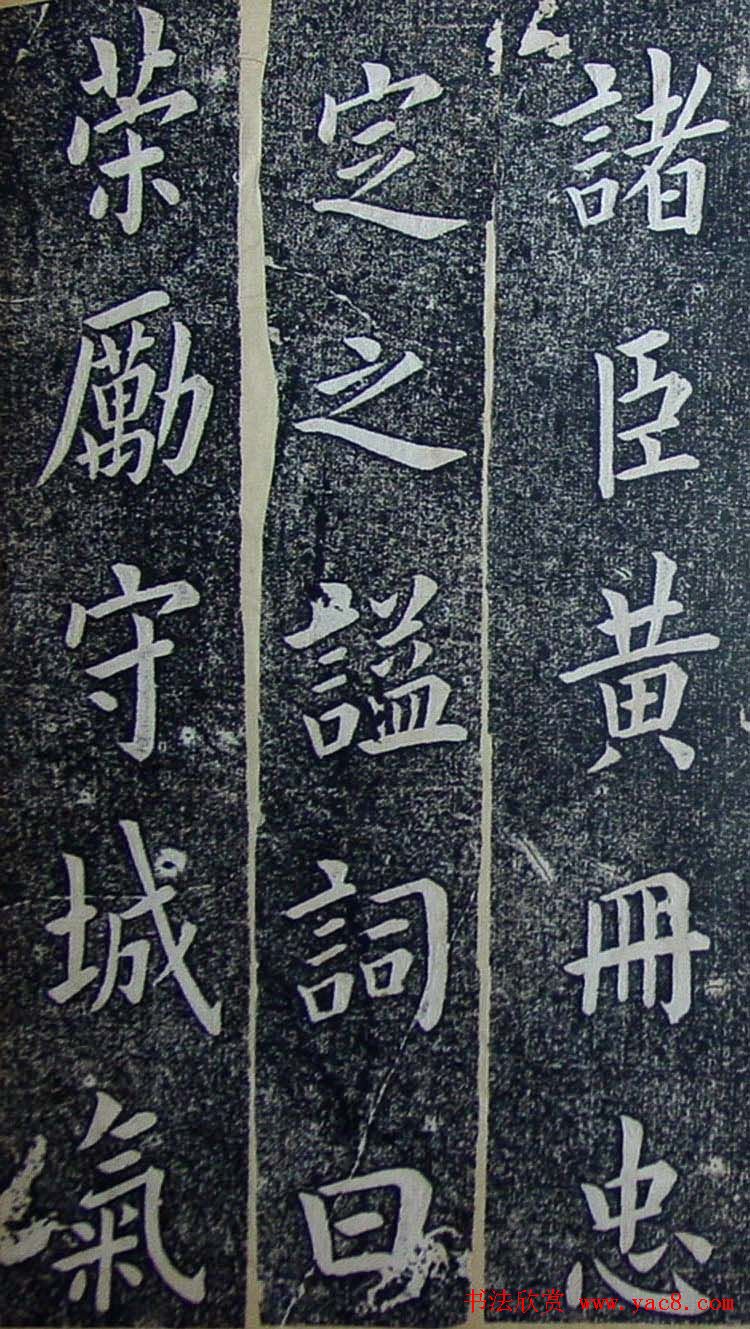 諸臣黄冊忠
定之謚詞曰
荣勵守城氣
书法欣赏 www.yac8.com